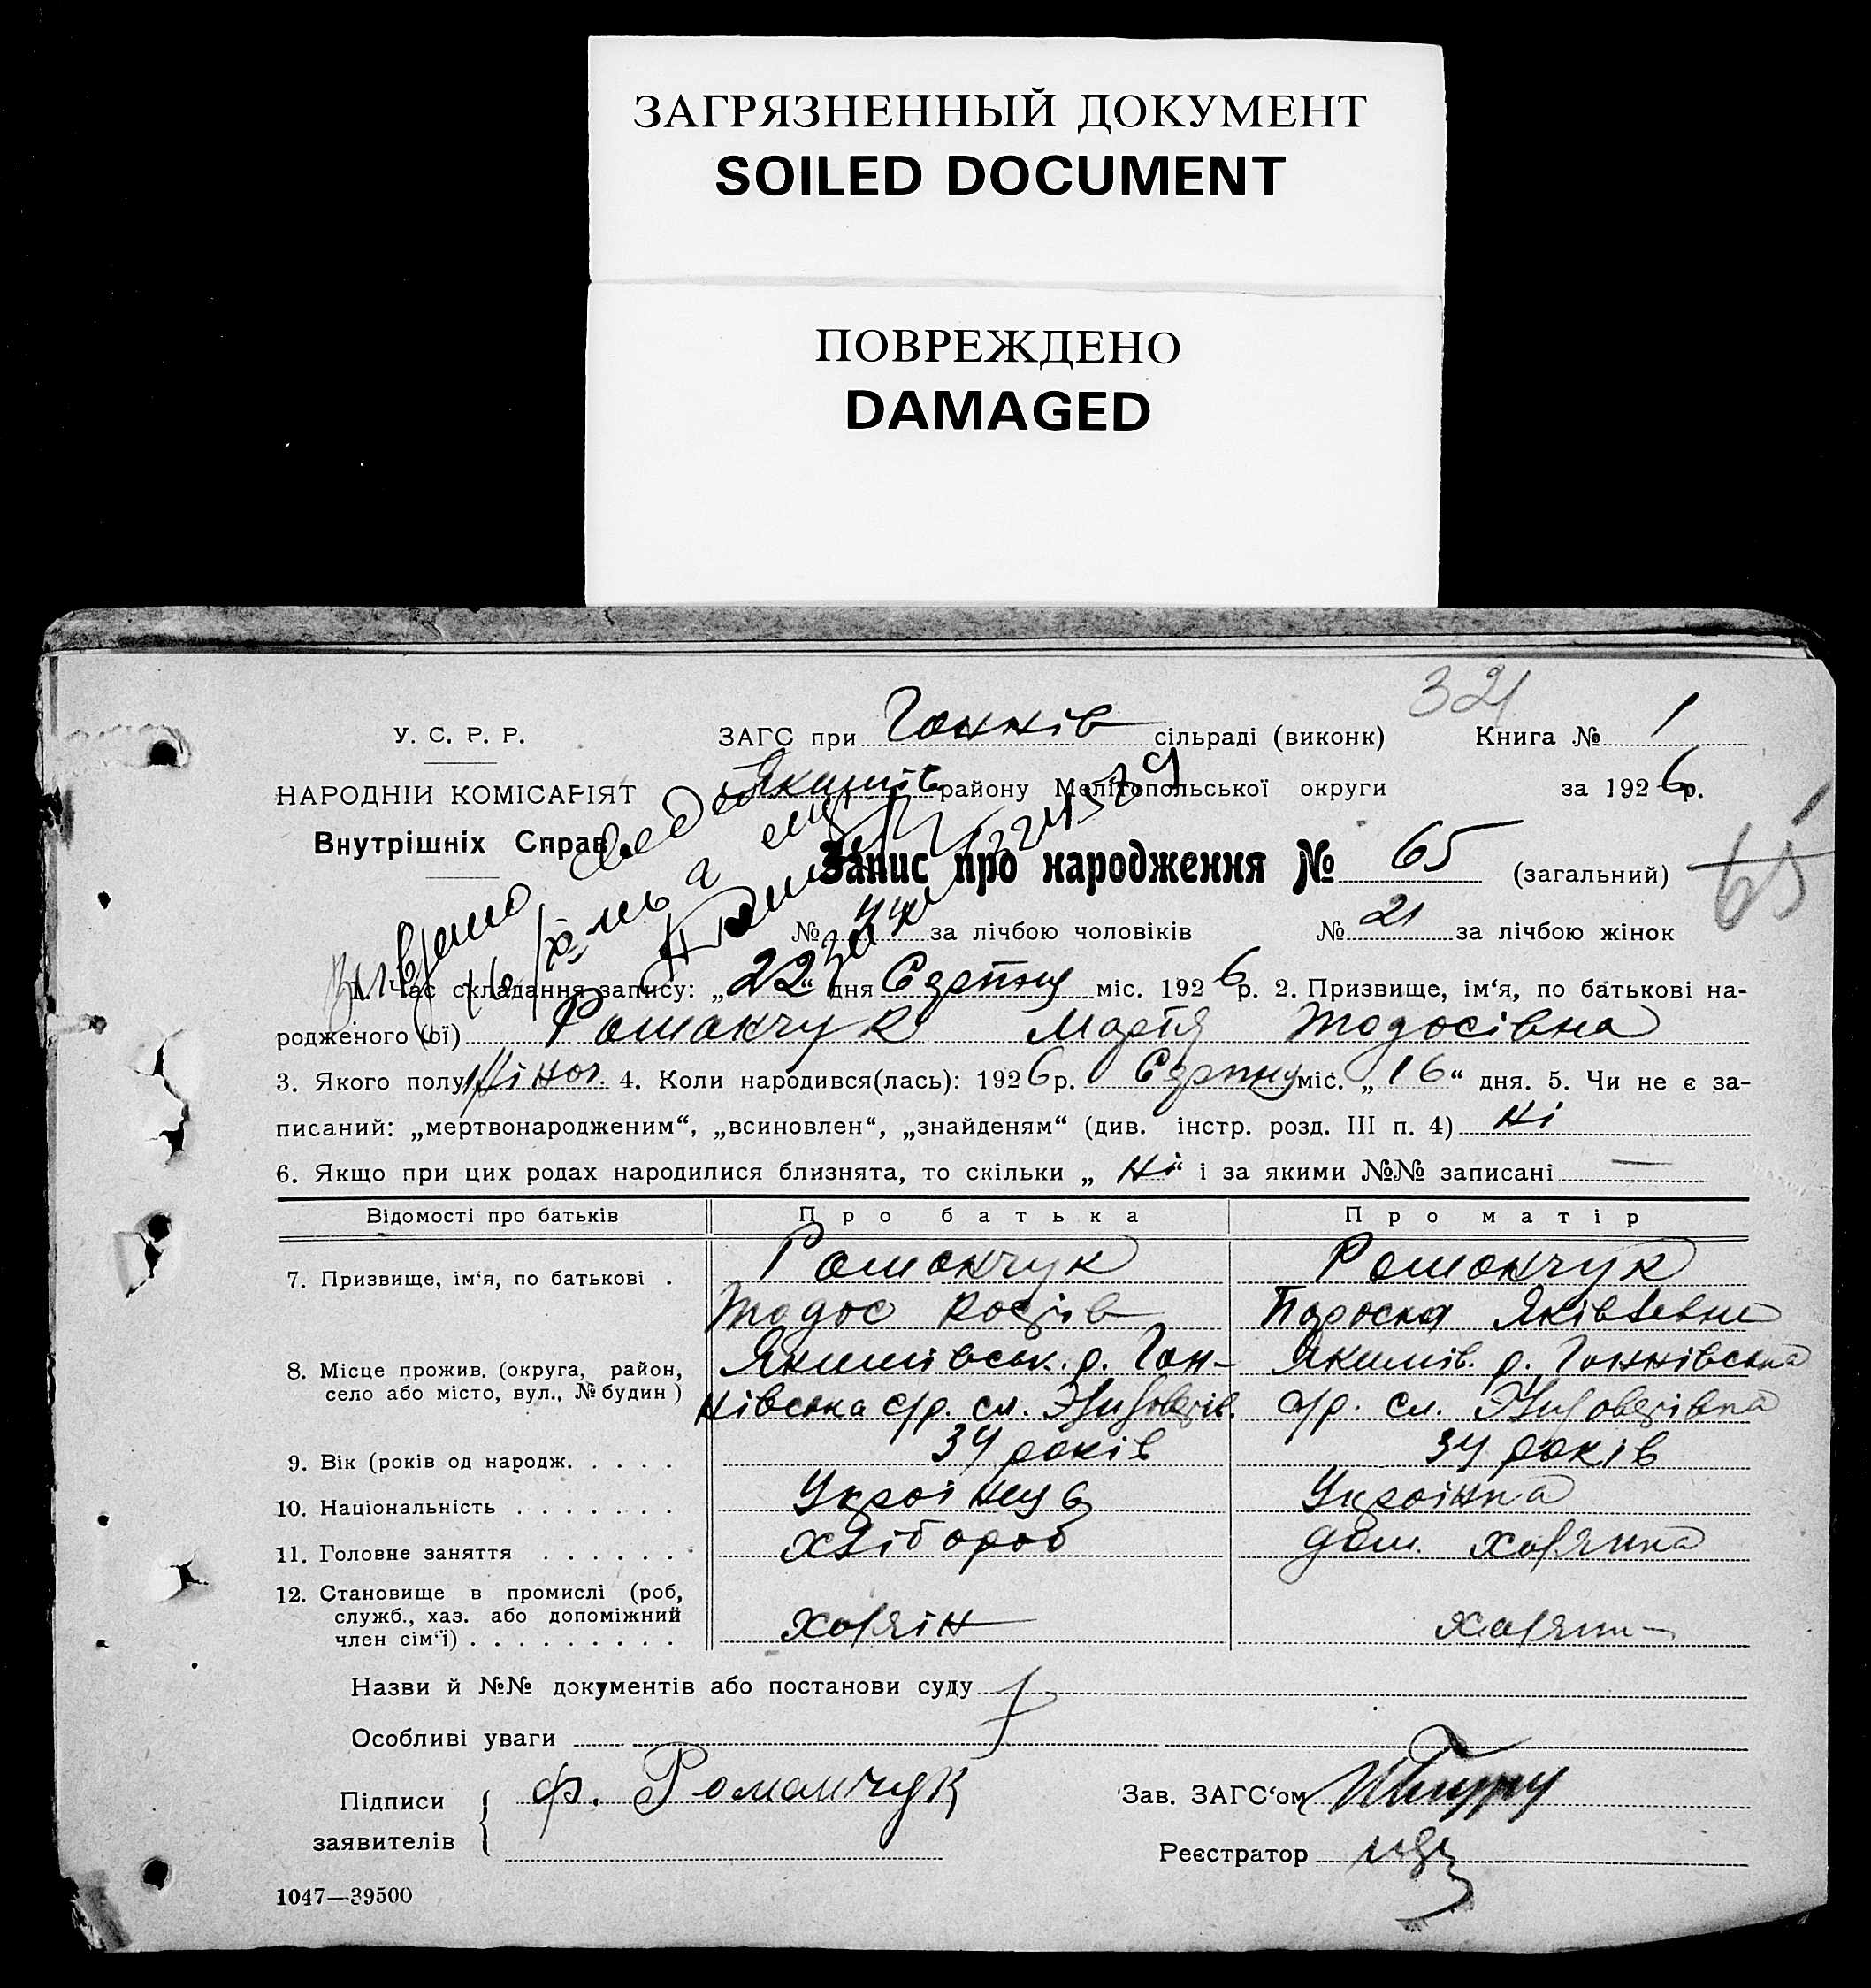 ЗАГРЯЗНЕННЫЙ ДОКУМЕНТ
SOILED DOCUMENT
ПОВРЕЖДЕНО
DAMAGED
321
У. С. Р. Р.
ЗАГС при Ганнів сільраді (виконк) Книга № 1
НАРОДНІЙ КОМІСАРІЯТ
Якимів району Мелітопольської округи за 1926 р.
Внутрішніх Справ.
Запис про народження № 65 (загальний) 65
№ 44 за лічбою чоловіків № 21 за лічбою жінок
1. Час складання запису: „22“ дня Серпну міс. 1926 р. 2. Призвище, ім‘я, по батькові на-
родженого (ої) Романчук Марія Тодосівна
3. Якого полу Жіноч. 4. Коли народився(лась): 1926 р. Серпну міс. „16“ дня. 5. Чи не є за-
писаний: „мертвонародженим“, „всиновлен“, „знайденям“ (див. інстр. розд. III п. 4) ні
6. Якщо при цих родах народилися близнята, то скільки „ні“ і за якими №№ записані —
Відомості про батьків Про батька Про матір
7. Призвище, ім‘я, по батькові . Романчук Романчук
Тодос Параска Яківлевна
8. Місце прожив. (округа, район, Якимівськ. р. Ган- Якимів. р. Ганнівська
село або місто, вул., № будин) нівська с/р. сл. с/р. сл.
9. Вік (років од народж. . . . . 34 років 34 років
10. Національність . . . . . . . Українець Українка
11. Головне заняття . . . . . . хлібороб дом. хазяйка
12. Становище в промислі (роб,
служб., хаз. або допоміжний
член сім‘ї) . . . . . . . . . хазяін
Назви й №№ документів або постанови суду
Особливі уваги
Підписи Ф. Романчук Зав. ЗАГС‘ом
заявителів
Реєстратор
1047—39500